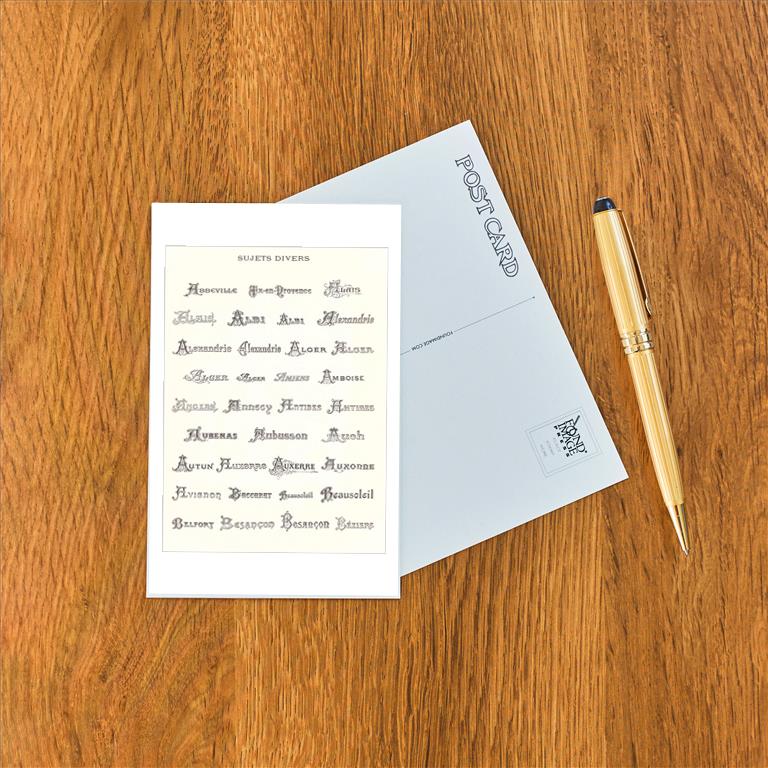 SUJETS DIVERS
Abbeville Aix-en-Provence Alais
Alais Albi Albi Alexandrie
Alexandrie Alexandrie Alger Alger
Alger Alger Amiens Amboise
Angers Annecy Antibes Antibes
Aubenas Aubusson Auch
Autun Auxerre Auxerre Auxonne
Avignon Baccarat Beausoleil Beausoleil
Belfort Besançon Besançon Béziers
POST CARD
FOUNDIMAGE.COM
FOUND
IMAGE
PRESS